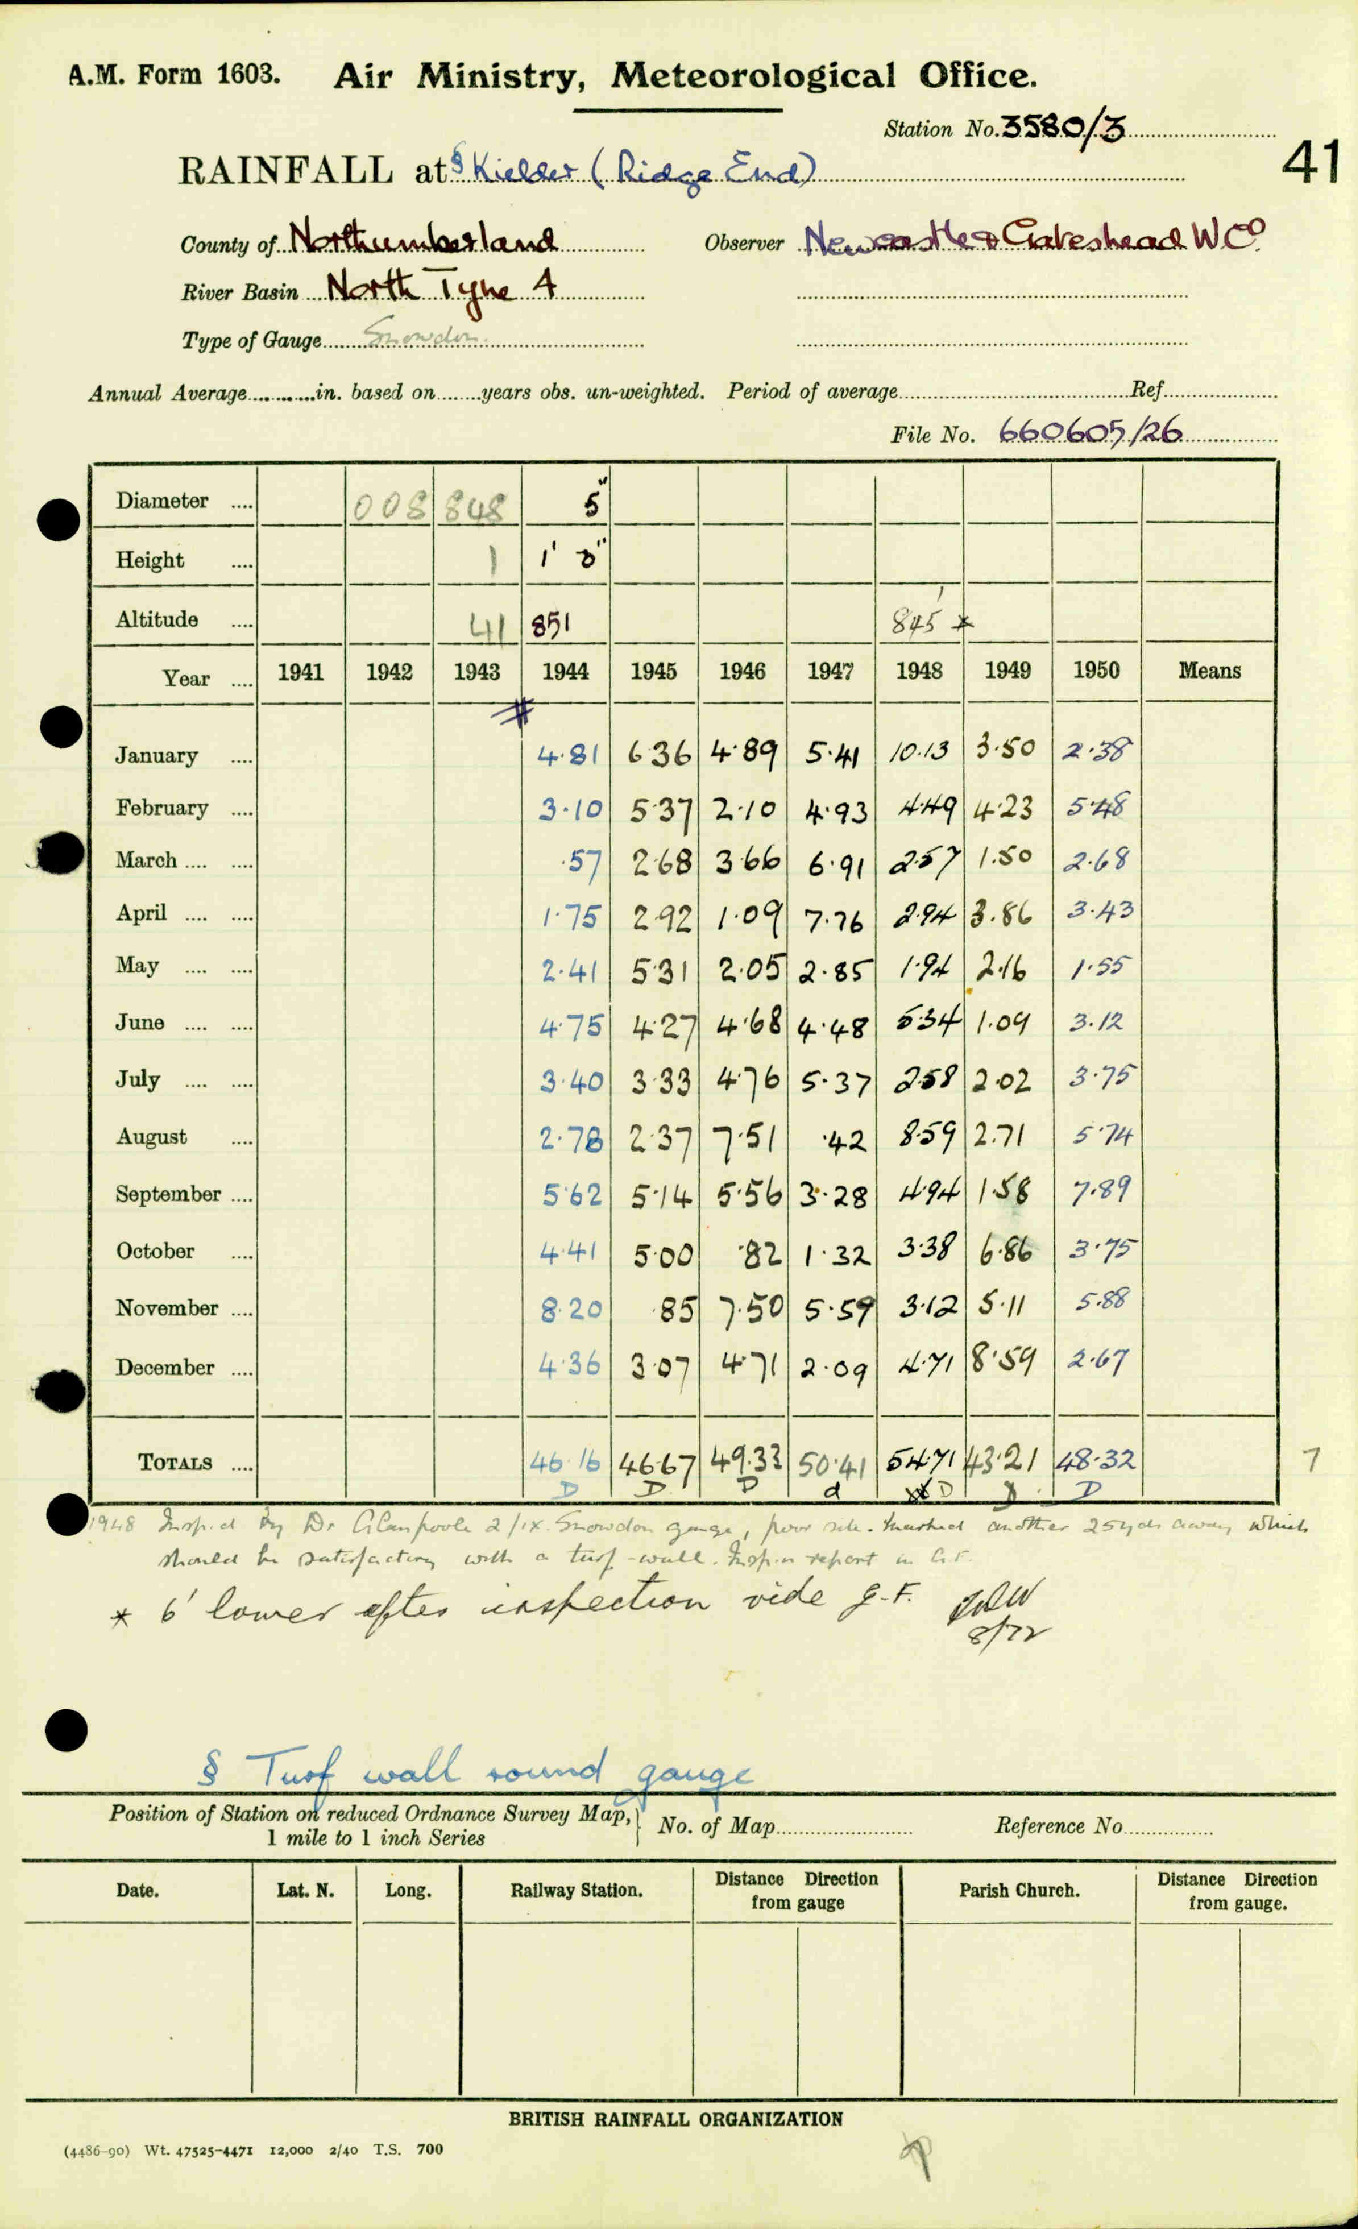 A.M. Form 1603. Air Ministry, Meteorological Office.
Station No. 3580/3
41
RAINFALL at § Kielder (Ridge End)
County of Northumberland Observer Newcastle & Gateshead W.Co.
River Basin North Tyne 4
Type of Gauge Snowdon
Annual Average in. based on years obs. un-weighted. Period of average Ref.
File No. 660605/26
Diameter 008 848 5"
Height 1 1' 0"
Altitude 41 851 845' *
Year 1941 1942 1943 1944 1945 1946 1947 1948 1949 1950 Means
January 4.81 6.36 4.89 5.41 10.13 3.50 2.38
February 3.10 5.37 2.10 4.93 4.49 4.23 5.48
March .57 2.68 3.66 6.91 2.57 1.50 2.68
April 1.75 2.92 1.09 7.76 2.94 3.86 3.43
May 2.41 5.31 2.05 2.85 1.94 2.16 1.55
June 4.75 4.27 4.68 4.48 5.34 1.09 3.12
July 3.40 3.33 4.76 5.37 2.58 2.02 3.75
August 2.78 2.37 7.51 .42 8.59 2.71 5.74
September 5.62 5.14 5.56 3.28 4.94 1.58 7.89
October 4.41 5.00 .82 1.32 3.38 6.86 3.75
November 8.20 .85 7.50 5.59 3.12 5.11 5.88
December 4.36 3.07 4.71 2.09 4.71 8.59 2.67
TOTALS 46.16 46.67 49.33 50.41 54.71 43.21 48.32 7
D D D d D D D
1948 Insp.d by Dr Glasspoole 2/IX. Snowdon gauge, poor site. Marked another 25 yds away which
should be satisfactory with a turf-wall. Insp.n report in G.F.
* 6' lower after inspection vide G.F.
8/72
§ Turf wall round gauge
Position of Station on reduced Ordnance Survey Map, 1 mile to 1 inch Series No. of Map Reference No
Date. Lat. N. Long. Railway Station. Distance Direction from gauge Parish Church. Distance Direction from gauge.
BRITISH RAINFALL ORGANIZATION
(4486-90) Wt. 47525-4471 12,000 2/40 T.S. 700